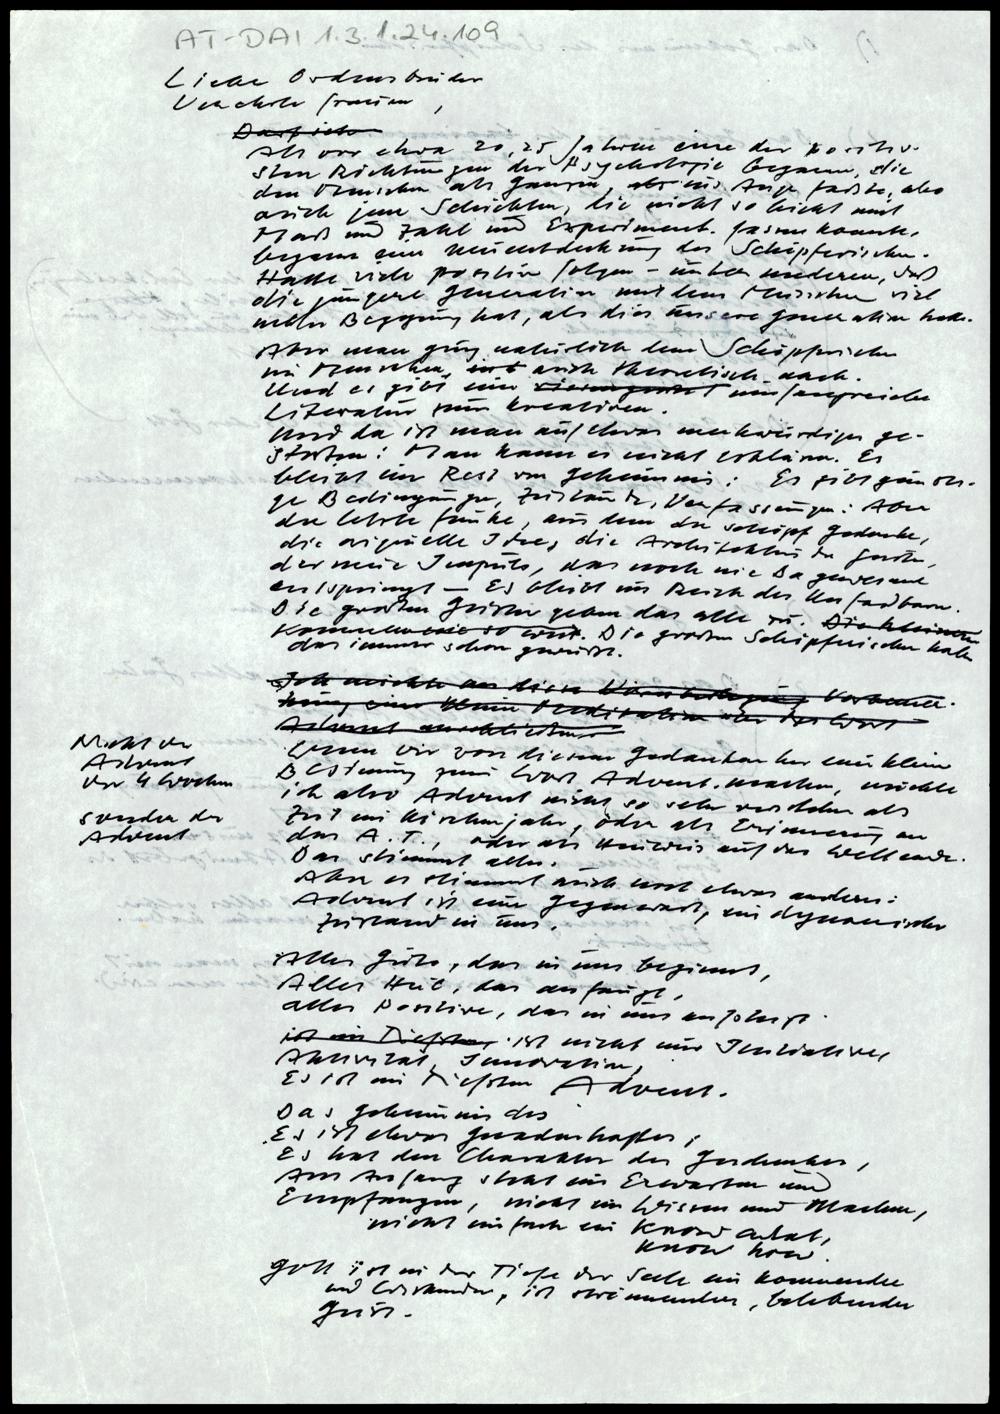 AT-DAI 1.3.1.24.109
Liebe Ordensbrüder
Verehrte Frauen,
Darf ich
Als vor etwa 20, 25 Jahren eine der positiv-
sten Richtungen der Psychologie begann, die
den Menschen als Ganzen, ins Auge faßte, also
auch jene Schichten, die nicht so leicht mit
Maß und Zahl und Experiment. fassen konnte,
begann eine Neuentdeckung des Schöpferischen.
Hatte viele positive Folgen - unter anderem, daß
die jüngere Generation mit dem Musischen viel
mehr Begegnung hat, als dies unsere Generation hatte.
Aber man ging natürlich dem Schöpferischen
im Menschen, auch theoretisch nach.
Und es gibt eine umfangreiche
Literatur zum Kreativen.
Und da ist man auf etwas merkwürdiges ge-
stoßen: Man kann es nicht erklären. Es
bleibt ein Rest von Geheimnis: Es gibt günsti-
ge Bedingungen, Zustände, Verfassungen: Aber
der letzte Funke, aus dem der schöpf Gedanke,
die originelle Idee, die Architektur der Seele,
der neue Impuls, das noch nie Dagewesene
entspringt - Es bleibt im Reich des Unfaßbaren.
Die großen Geister geben das alle zu. Die kleineren
Kommen nie so weit. Die großen Schöpferischen haben
das immer schon gewußt.
Ich möchte an diese Vorüberlegung Vorbemer-
kung eine kleine Meditation über das Wort
Advent anschließen
Wenn wir von diesem Gedanken her eine kleine
Besinnung zum Wort Advent machen, möchte
ich also Advent nicht so sehr verstehen als
Zeit im Kirchenjahr, oder als Erinnerung an
das A.T., oder als Hinweis auf das Weltende.
Das stimmt alles.
Aber es stimmt auch noch etwas anderes:
Advent ist eine Gegenwart, ein dynamischer
Zustand in uns.
Nicht der
Advent
der 4 Wochen
sondern der
Advent
Alles Gute, das in uns beginnt,
Alles Heil, das anfängt,
alles Positive, das in uns aufsteigt
ist im Tiefsten ist nicht nur Initiative,
Aktivität, Innovation,
Es ist im Tiefsten Advent.
Das Geheimnis des
Es ist etwas Gnadenhaftes,
Es hat den Charakter des Geschenkes,
Am Anfang steht ein Erwarten und
Empfangen, nicht ein Wissen und Machen,
nicht einfach ein Know what,
Know how.
Gott ist in der Tiefe der Seele ein kommender
und wirkender, ist strömender, belebender
Geist.